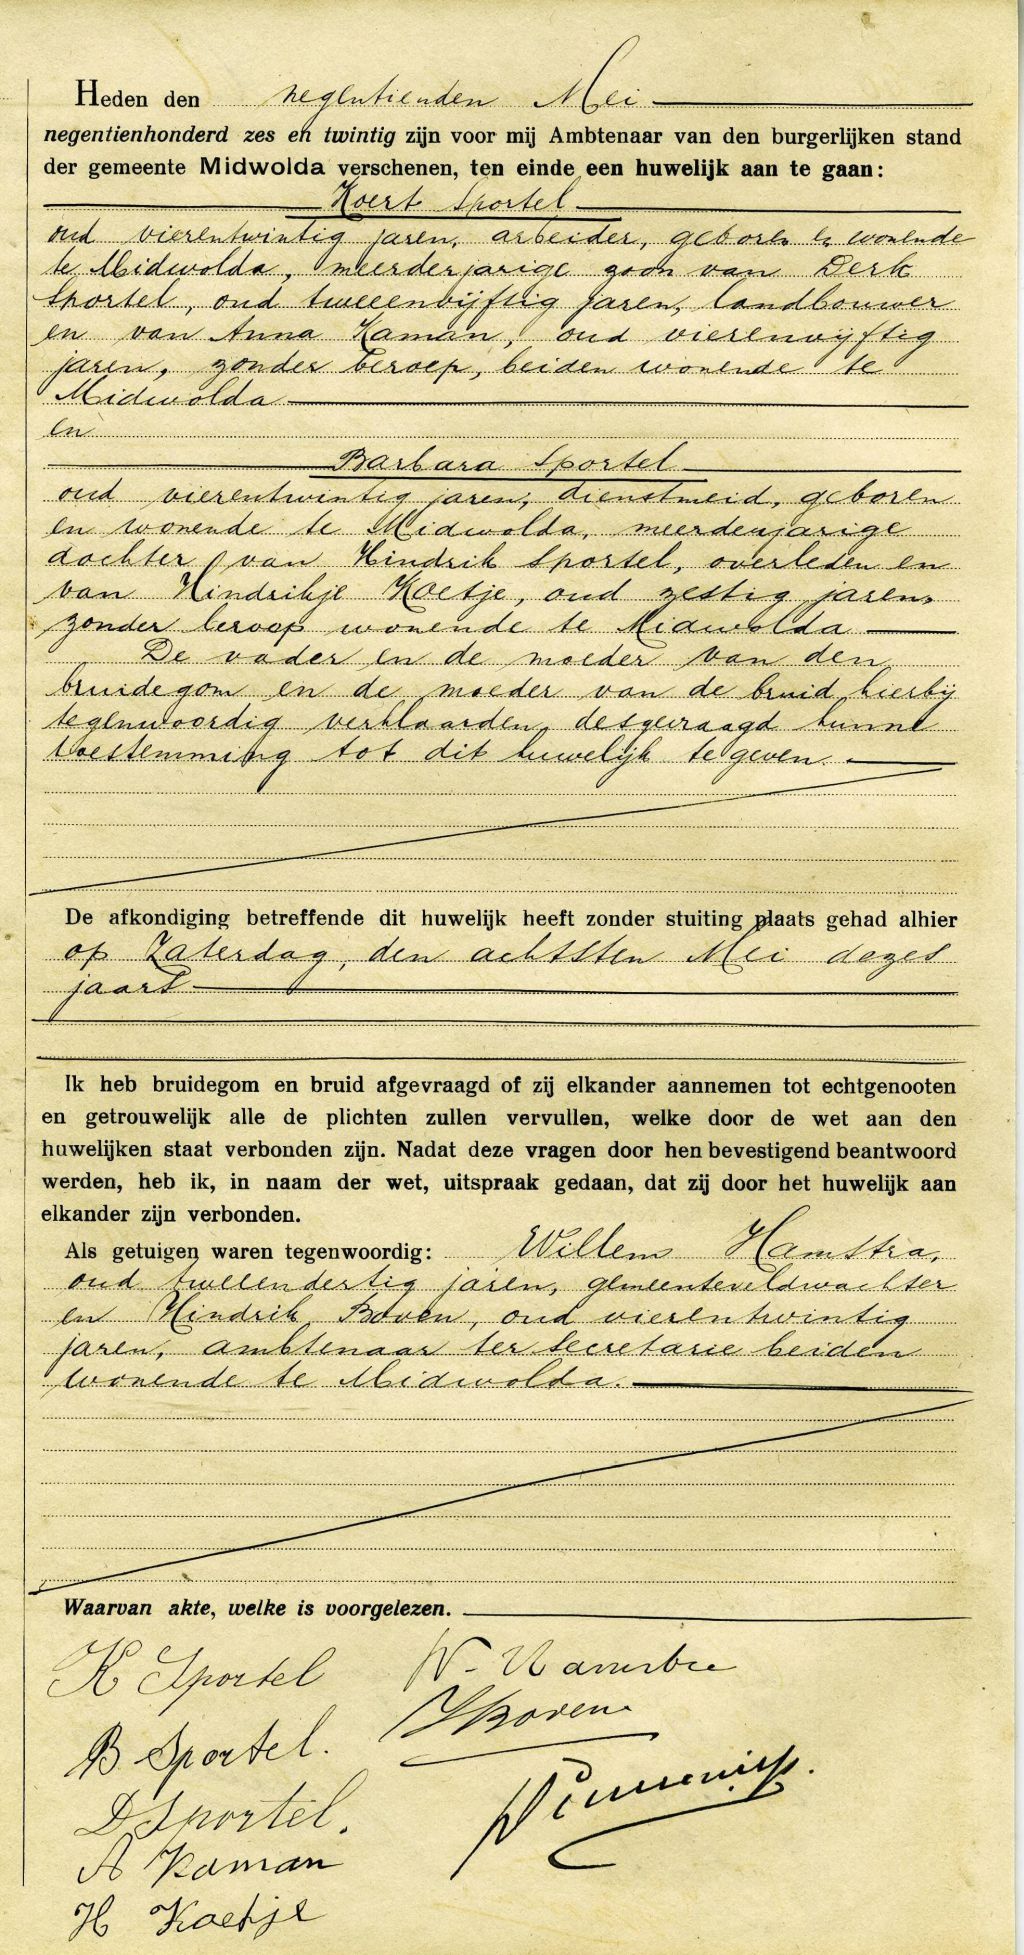 Heden den negentienden Mei
negentienhonderd zes en twintig zijn voor mij Ambtenaar van den burgerlijken stand
der gemeente Midwolda verschenen, ten einde een huwelijk aan te gaan:
Koert Sportel
oud vierentwintig jaren, arbeider, geboren en wonende
te Midwolda, meerderjarige zoon van Derk
Sportel, oud tweeenvijftig jaren, landbouwer
en van Anna Kaman, oud vierenvijftig
jaren, zonder beroep, beiden wonende te
Midwolda
en
Barbara Sportel
oud vierentwintig jaren, dienstmeid, geboren
en wonende te Midwolda, meerderjarige
dochter van Hindrik Sportel, overleden en
van Hindrikje Koetje, oud zestig jaren,
zonder beroep wonende te Midwolda
De vader en de moeder van den
bruidegom en de moeder van de bruid hierbij
tegenwoordig verklaarden, desgevraagd hunne
toestemming tot dit huwelijk te geven.
De afkondiging betreffende dit huwelijk heeft zonder stuiting plaats gehad alhier
op Zaterdag, den achtsten Mei dezes
jaars
Ik heb bruidegom en bruid afgevraagd of zij elkander aannemen tot echtgenooten
en getrouwelijk alle de plichten zullen vervullen, welke door de wet aan den
huwelijken staat verbonden zijn. Nadat deze vragen door hen bevestigend beantwoord
werden, heb ik, in naam der wet, uitspraak gedaan, dat zij door het huwelijk aan
elkander zijn verbonden.
Als getuigen waren tegenwoordig: Willem Hamstra,
oud tweeendertig jaren, gemeenteveldwachter
en Hindrik Boven, oud vierentwintig
jaren, ambtenaar ter secretarie beiden
wonende te Midwolda.
Waarvan akte, welke is voorgelezen.
K Sportel W. Hamstra
B Sportel. HBoven
D Sportel.
A Kaman
H Koetje